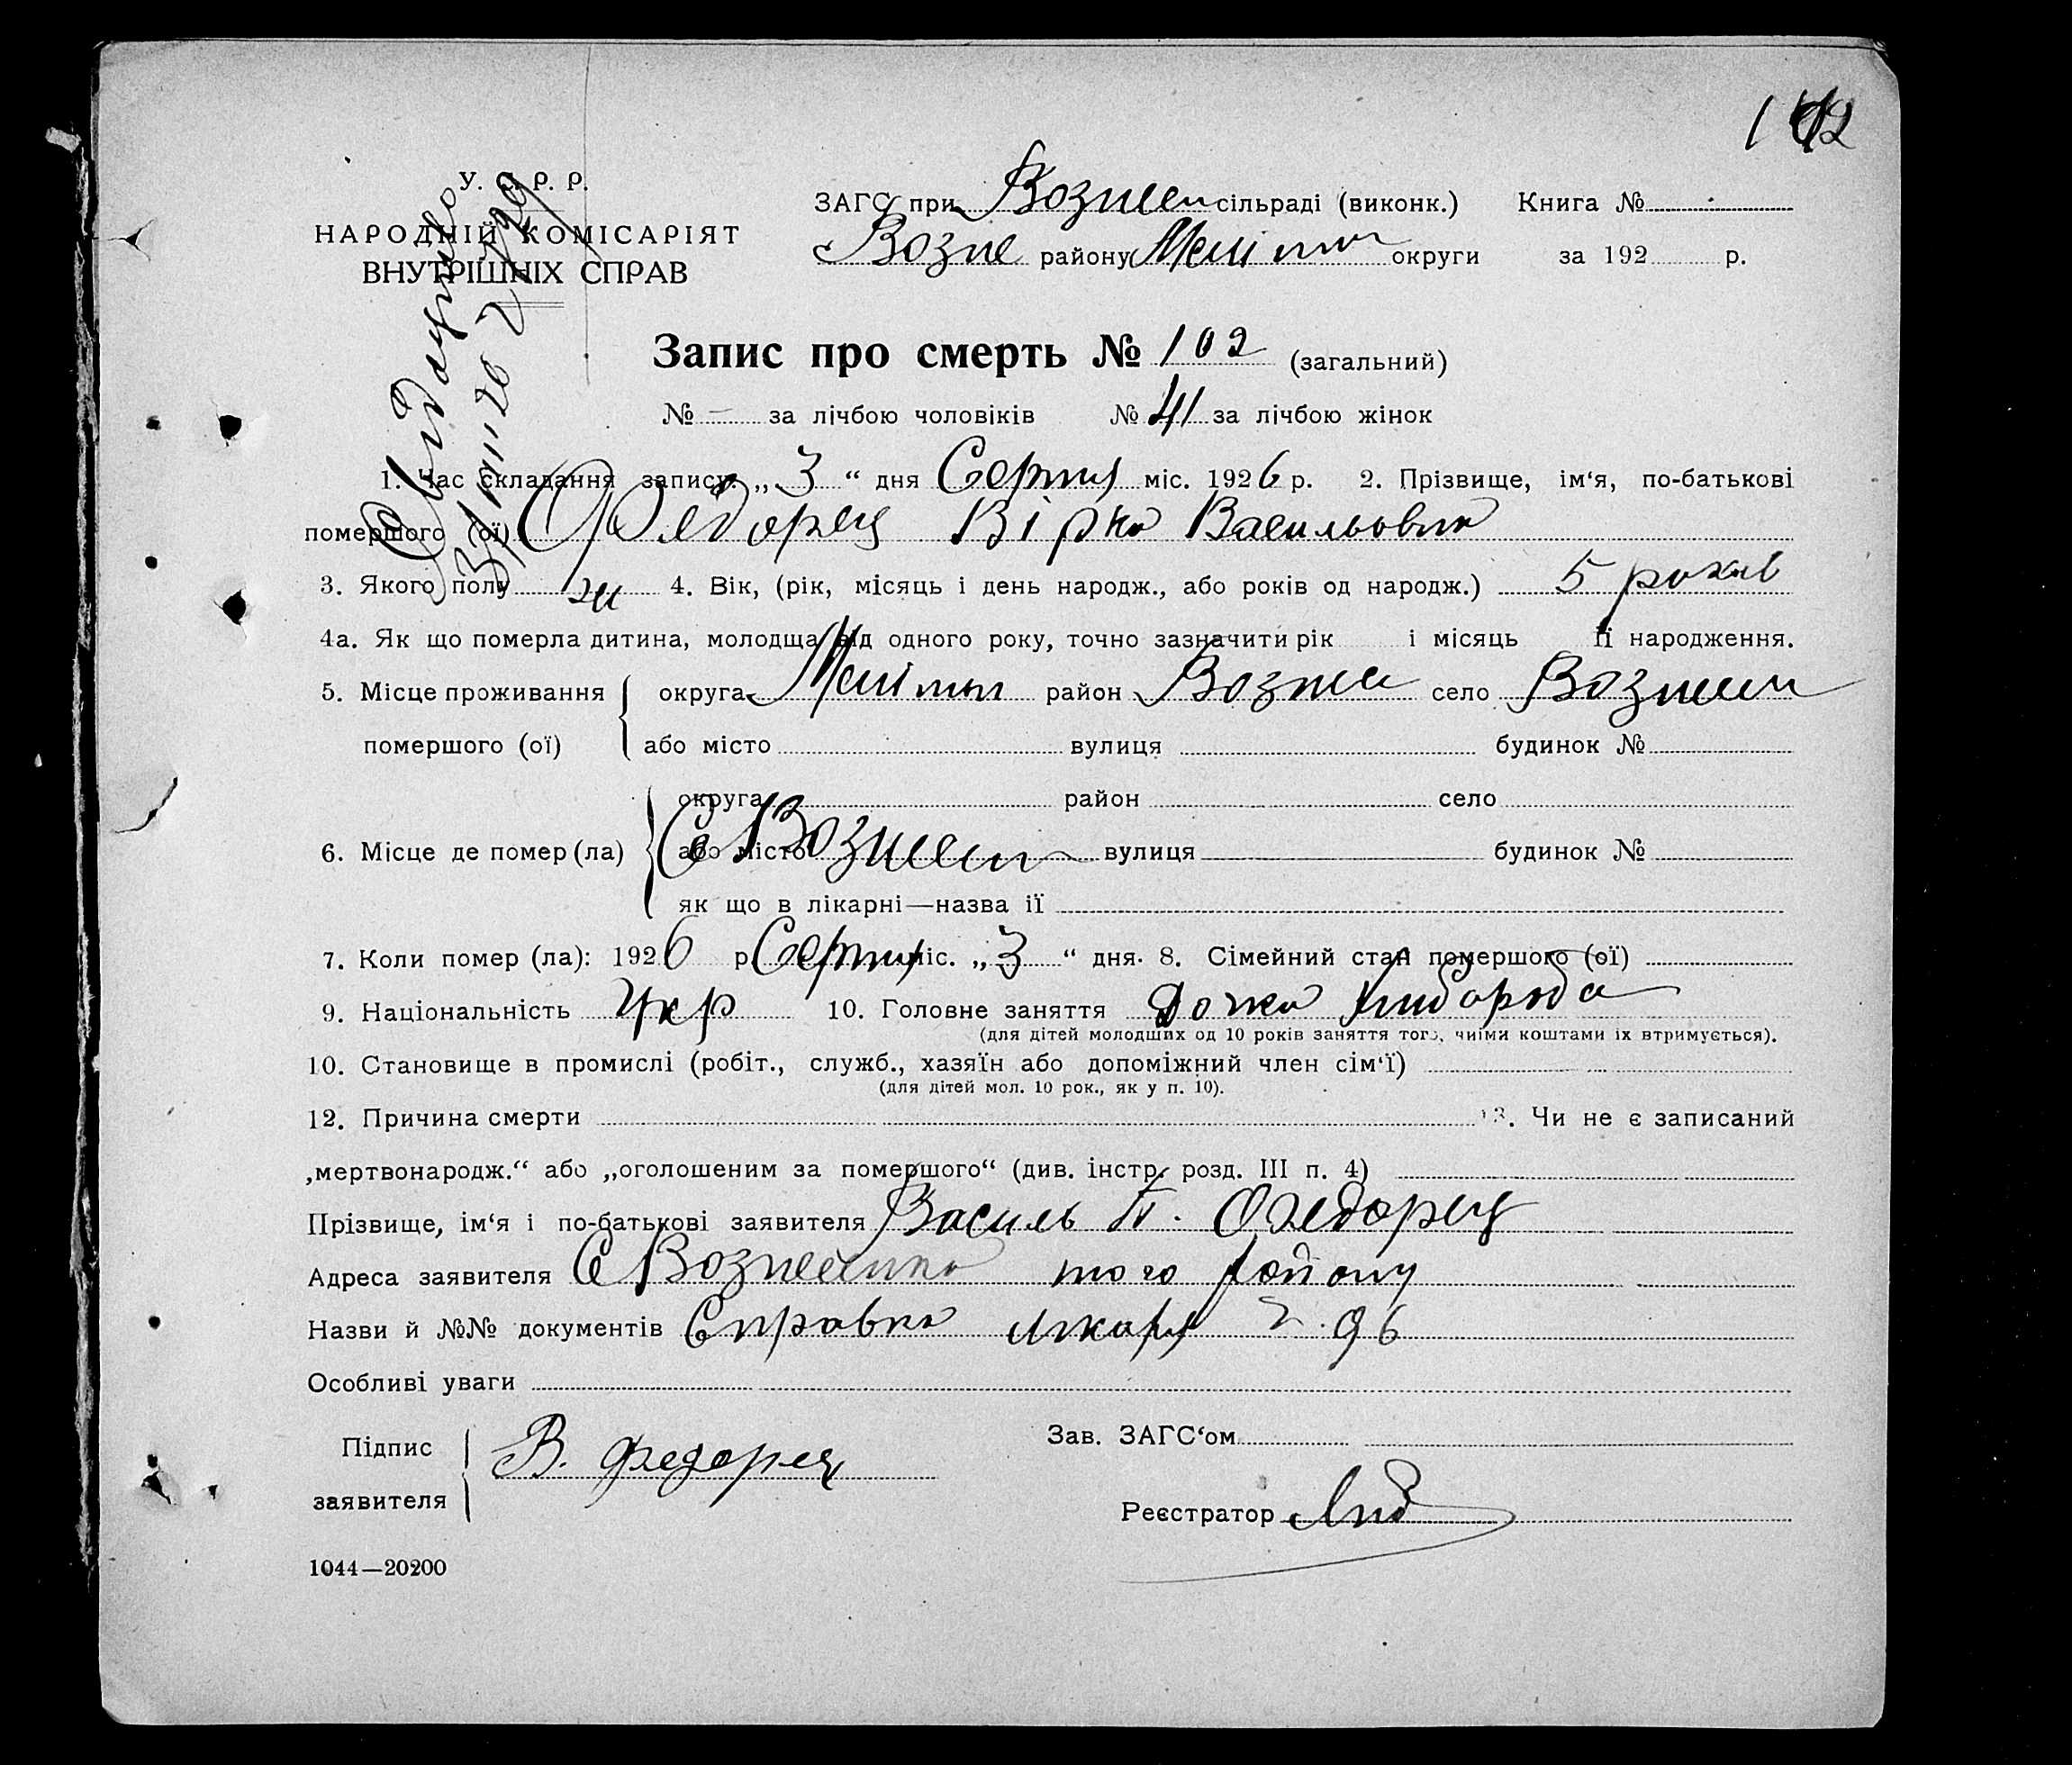 142
У. С. Р. Р.
НАРОДНІЙ КОМІСАРІЯТ
ВНУТРІШНІХ СПРАВ
ЗАГС при Вознесен сільраді (виконк.) Книга №
Возне району Меліт округи за 192 р.
Запис про смерть № 102 (загальний)
№ — за лічбою чоловіків № 41 за лічбою жінок
1. Час складання запису „3“ дня Серпня міс. 1926 р. 2. Прізвище, ім‘я, по-батькові
помершого (ої) Федорец Вірка Васильовна
3. Якого полу ж 4. Вік, (рік, місяць і день народж., або років од народж.) 5 років
4а. Як що померла дитина, молодща від одного року, точно зазначити рік і місяць її народження.
5. Місце проживання округа Меліт район Возне село Вознесен
помершого (ої) або місто вулиця будинок №
округа район село
6. Місце де помер (ла) або місто С Вознесен вулиця будинок №
як що в лікарні—назва ії
7. Коли помер (ла): 1926 р. Серпня міс. „3“ дня. 8. Сімейний стан помершого (ої)
9. Національність Укр 10. Головне заняття Дочка хлібороба
(для дітей молодших од 10 років заняття того, чиїми коштами іх втримується).
10. Становище в промислі (робіт., служб., хазяїн або допоміжний член сім‘ї)
(для дітей мол. 10 рок., як у п. 10).
12. Причина смерти 13. Чи не є записаний
„мертвонародж.“ або „оголошеним за помершого“ (див. інстр. розд. III п. 4)
Прізвище, ім‘я і по-батькові заявителя Василь П. Федорец
Адреса заявителя С Вознесенка того району
Назви й №№ документів Справка лікаря 96
Особливі уваги
Підпис
заявителя В. Федорец
Зав. ЗАГС‘ом
Реєстратор
1044—20200